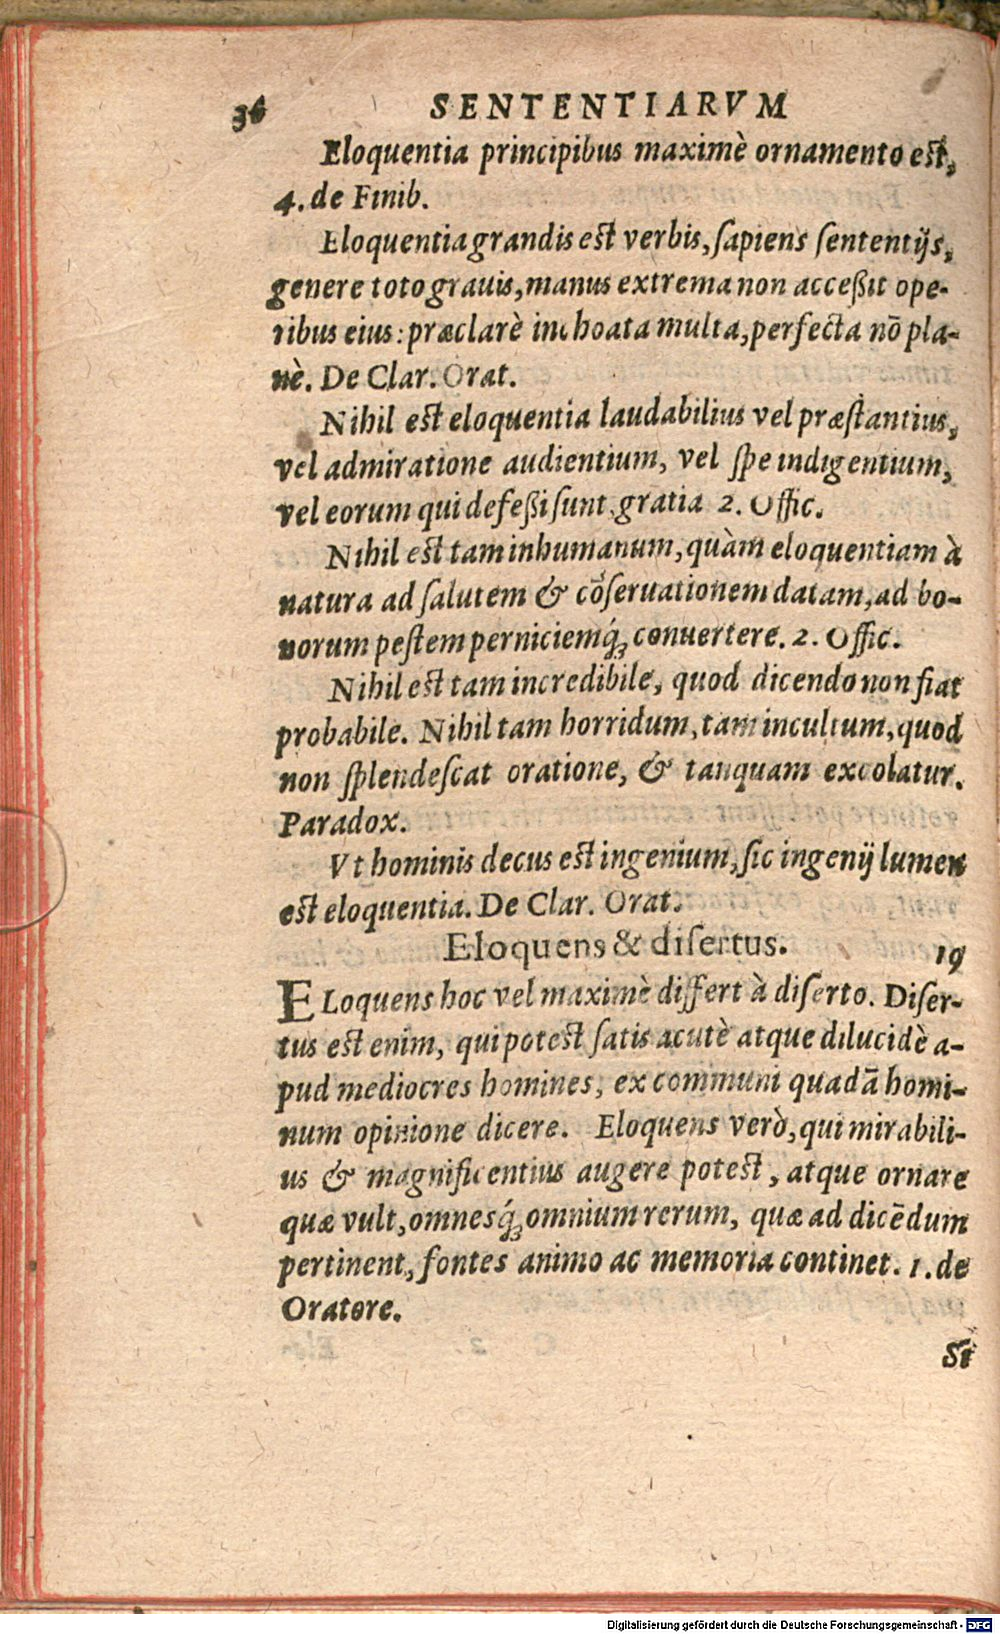 36 SENTENTIARVM
Eloquentia principibus maximè ornamento est,
4. de Finib.
Eloquentia grandis est verbis, ſapiens ſententijs,
genere toto grauis, manus extrema non acceßit ope-
ribus eius: præclarè inchoata multa, perfecta nō pla-
nè. De Clar. Orat.
Nihil est eloquentia laudabilius vel præſtantius,
vel admiratione audientium, vel ſpe indigentium,
vel eorum qui defeßi ſunt, gratia 2. Offic.
Nihil est tam inhumanum, quàm eloquentiam à
natura ad ſalutem & cōſeruationem datam, ad bo-
norum peſtem perniciemq́; conuertere. 2. Offic.
Nihil est tam incredibile, quod dicendo non fiat
probabile. Nihil tam horridum, tam incultum, quod
non ſplendeſcat oratione, & tanquam excolatur.
Paradox.
Vt hominis decus est ingenium, ſic ingenij lumen
est eloquentia. De Clar. Orat.
Eloquens & diſertus. 19
ELoquens hoc vel maximè differt à diſerto. Diſer-
tus est enim, qui potest ſatis acutè atque dilucidè a-
pud mediocres homines, ex communi quadā homi-
num opinione dicere. Eloquens verò, qui mirabili-
us & magnificentius augere potest, atque ornare
quæ vult, omnesq́; omnium rerum, quæ ad dicēdum
pertinent, fontes animo ac memoria continet. 1. de
Oratore.
Si
Digitalisierung gefördert durch die Deutsche Forschungsgemeinschaft - DFG